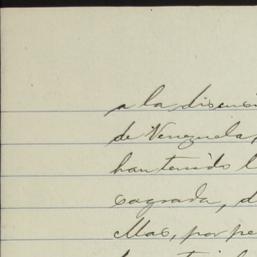 a la discusi
de Venezuela,
han tenido l
sagrada, d
Mas, por pe